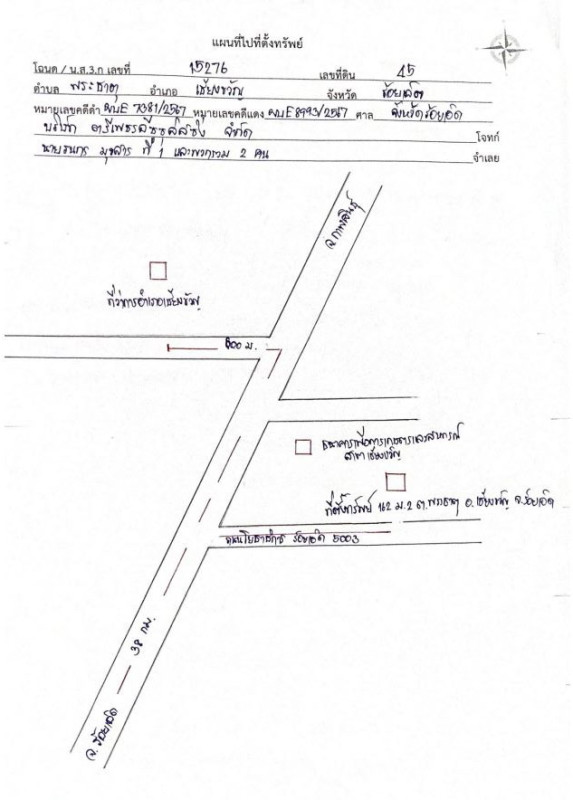 แผนที่ไปที่ตั้งทรัพย์
โฉนด / น.ส.3.ก เลขที่ 15276 เลขที่ดิน 45
ตำบล พระธาตุ อำเภอ เชียงขวัญ จังหวัด ร้อยเอ็ด
หมายเลขคดีดำ ผบE 7381/2567 หมายเลขคดีแดง ผบE 8993/2567 ศาล จังหวัดร้อยเอ็ด
บริษัท ลิซซิ่ง จำกัด โจทก์
นายธนกร ที่ 1 และพวกรวม 2 คน จำเลย
จ.กาฬสินธุ์
ที่ว่าการอำเภอเชียงขวัญ
800 ม.
ธนาคารเพื่อการเกษตรและสหกรณ์
สาขาเชียงขวัญ
ที่ตั้งทรัพย์ 162 ม.2 ต.พระธาตุ อ.เชียงขวัญ จ.ร้อยเอ็ด
ถนนโยธาธิการ ร้อยเอ็ด 5003
38 กม.
จ.ร้อยเอ็ด